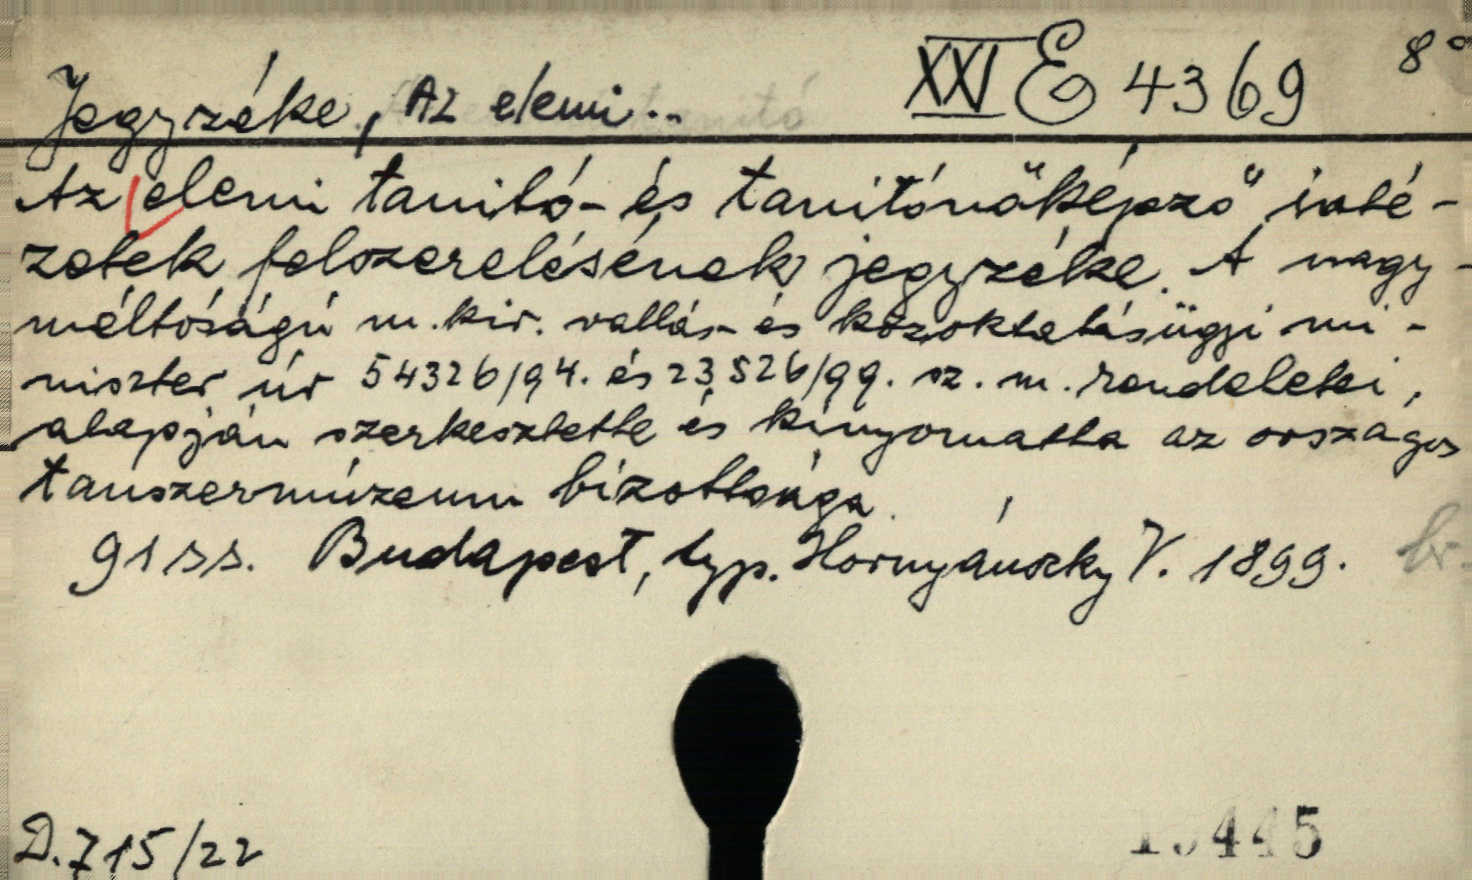 Jegyzéke, Az elemi.. XXI E 4369 8°
Az elemi tanitó- és tanitónőképző inté-
zetek felszerelésének jegyzéke. A nagy-
méltóságú m. kir. vallás- és közoktatásügyi mi-
niszter úr 54326/94. és 23526/99. sz. m. rendeletei,
alapján szerkesztette és kinyomatta az országos
tanszermúzeum bizottsága.
91 ss. Budapest, typ. Hornyánszky V. 1899. br.
D. 715/22